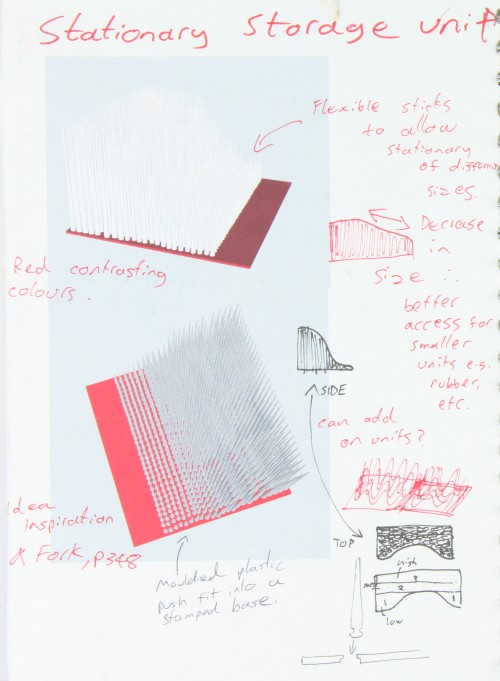 Stationary Storage unit
Flexible sticks
to allow
stationary
of differing
sizes.
Decrease
in
size ∴
better
access for
smaller
units e.g.
rubber,
etc.
Red contrasting
colours.
SIDE
can add
on units?
Idea
inspiration
Fork, p348
moulded plastic
push fit into a
stamped base.
TOP
high
3
med
2
1
1
low